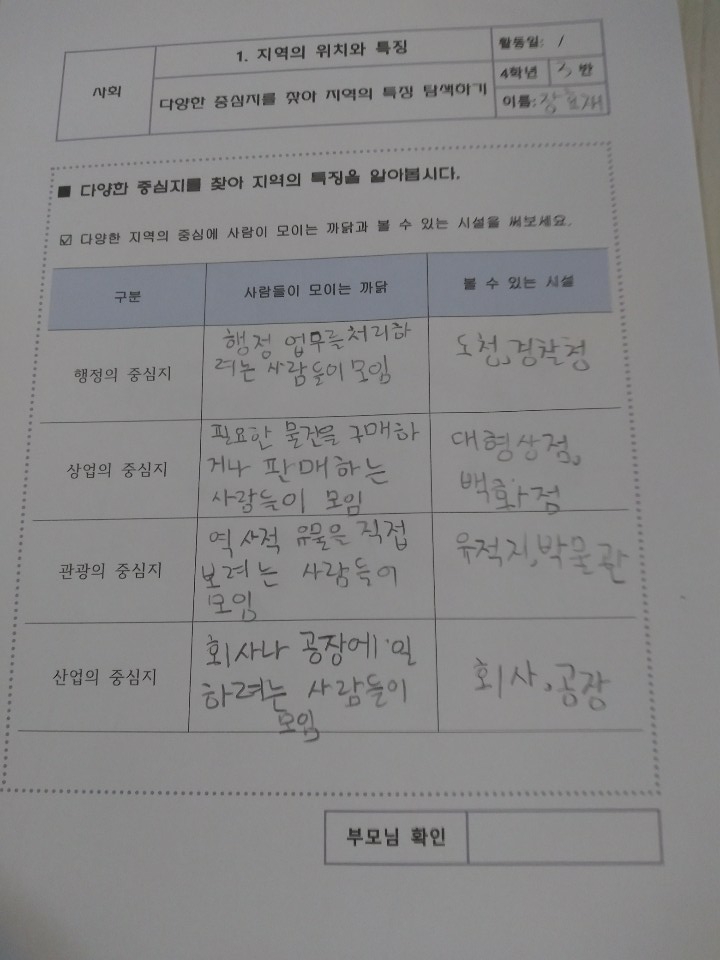 사회
1. 지역의 위치와 특징
활동일: /
다양한 중심지를 찾아 지역의 특징 탐색하기
4학년 3 반
이름:
■ 다양한 중심지를 찾아 지역의 특징을 알아봅시다.
☑ 다양한 지역의 중심에 사람이 모이는 까닭과 볼 수 있는 시설을 써보세요.
구분
사람들이 모이는 까닭
볼 수 있는 시설
행정의 중심지
행정 업무를처리하
려는 사람들이모임
도청,경찰청
상업의 중심지
필요한 물건을 구매하
거나 판매하는
사람들이 모임
대형상점,
백화점
관광의 중심지
역사적 유물을 직접
보려는 사람들이
모임
유적지,박물관
산업의 중심지
회사나 공장에 일
하려는 사람들이
모임
회사,공장
부모님 확인